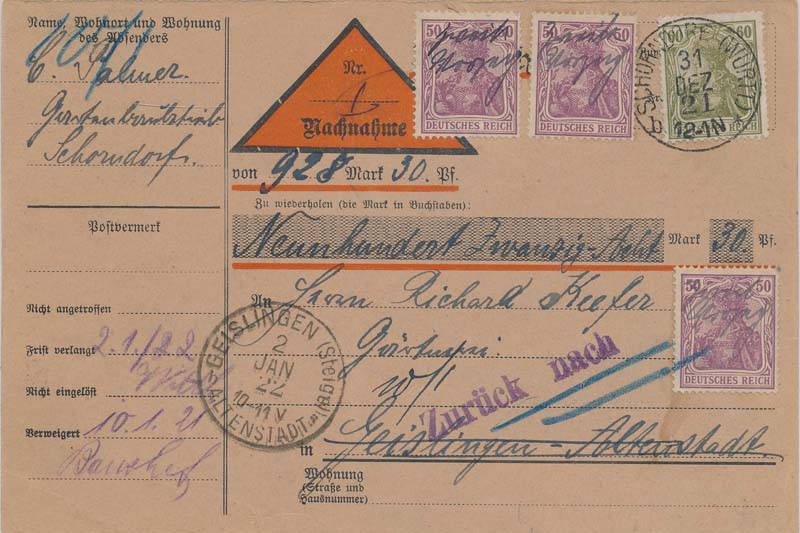 Name, Wohnort und Wohnung
des Absenders
C. Palmer.
Gartenbaubetrieb
Schorndorf.
Postvermerk
Nicht angetroffen
Frist verlangt 2.1./22
Nicht eingelöst
Verweigert 10.1.21
Nr. 1
Nachnahme
50 50
DEUTSCHES REICH
50 50
DEUTSCHES REICH
60 60
REICH
SCHORNDORF (WÜRTT)
31
DEZ
21
12-1N
b
von 928 Mark 30. Pf.
Zu wiederholen (die Mark in Buchstaben):
Neunhundert Zwanzig-Acht Mark 30. Pf.
An Herrn Richard Keefer
Gärtnerei.
50 50
DEUTSCHES REICH
GEISLINGEN (Steige)
2
JAN
22
10-11V
ALTENSTADT
Zurück nach
in Geislingen-Altenstadt.
Wohnung
(Straße und
Hausnummer)